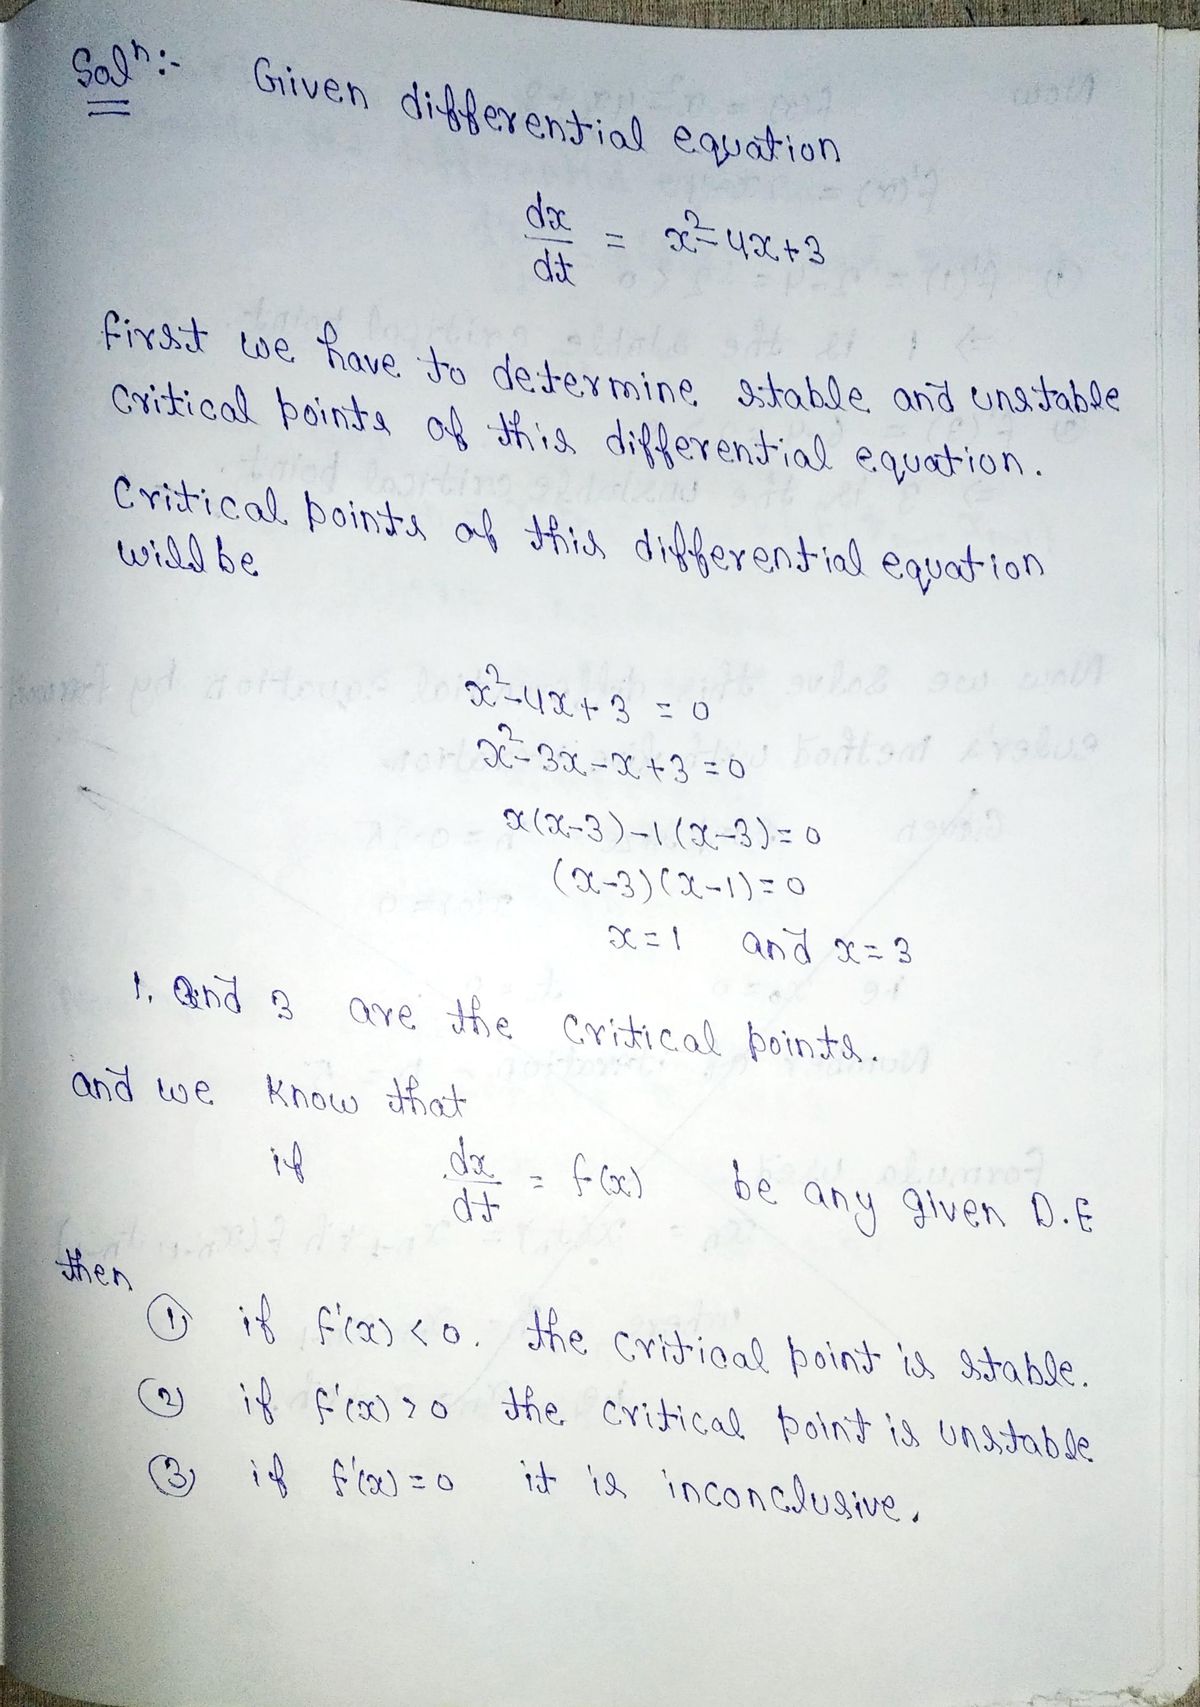 Solⁿ:- Given differential equation
dx/dt = x²-4x+3
First we have to determine stable and unstable
critical points of this differential equation.
Critical points of this differential equation
will be
x²-4x+3 = 0
x²-3x-x+3=0
x(x-3)-1(x-3)=0
(x-3)(x-1)=0
x=1 and x=3
1, and 3 are the critical points.
and we know that
if dx/dt = f(x) be any given D.E
then
① if f'(x) < 0. the critical point is stable.
② if f'(x) > 0 the critical point is unstable
③ if f'(x) = 0 it is inconclusive.